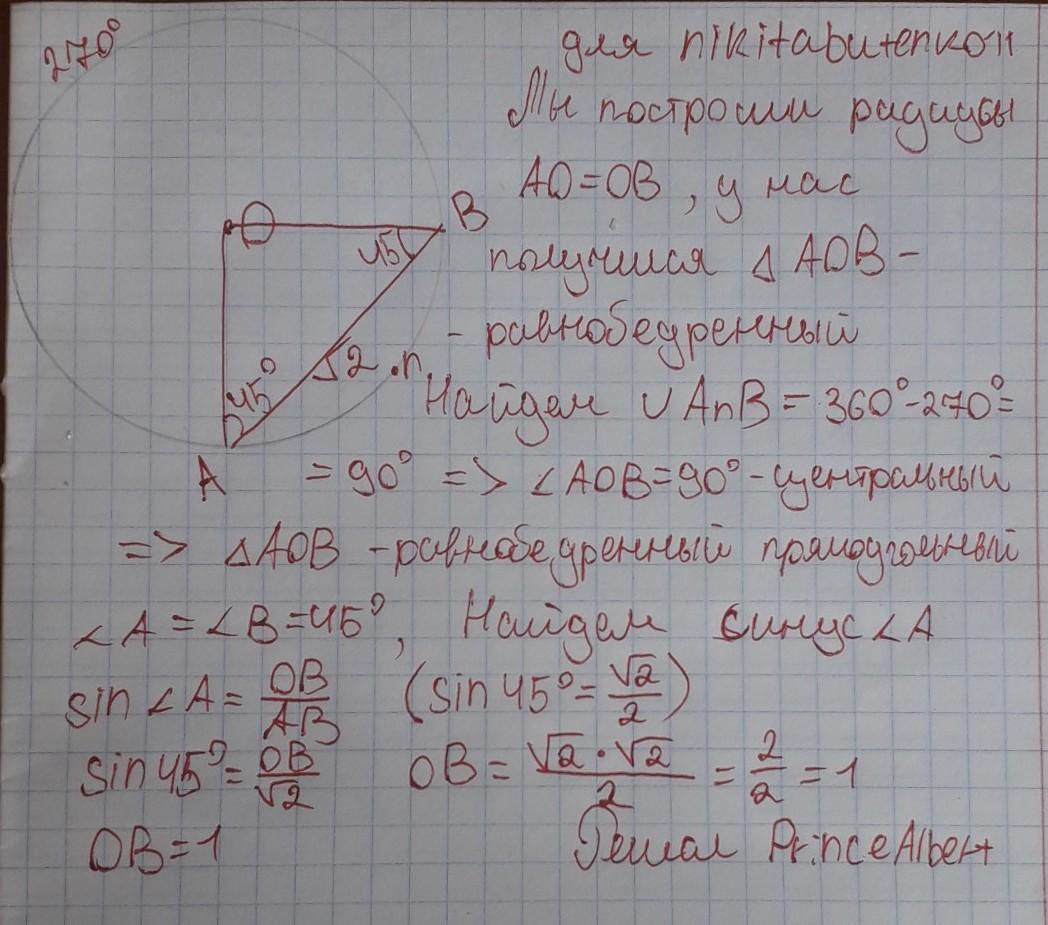 270°
для nikitabutenko11
Мы построили радиусы
AO=OB, у нас
O
B
45°
получился △ AOB -
- равнобедренный
√2 .n
45°
Найдем ∪AnB = 360°-270°=
A
= 90° => ∠AOB=90° - центральный
=> △AOB - равнобедренный прямоугольный
∠A = ∠B = 45°, Найдем синус ∠A
sin ∠A = OB/AB (sin 45° = √2/2)
sin 45° = OB/√2 OB = √2 · √2/2 = 2/2 = 1
OB = 1 Решал PrinceAlbert